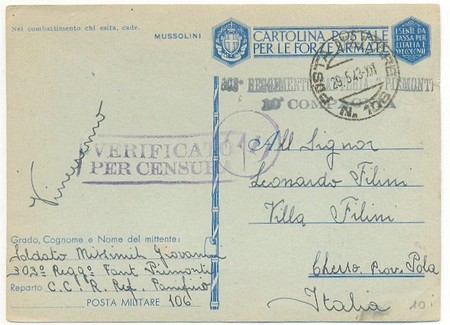 Nel combattimento chi esita, cade.
MUSSOLINI
CARTOLINA POSTALE
PER LE FORZE ARMATE
ESENTE DA
TASSA PER
L'ITALIA E
COLONIE
POSTA MILITARE
29.5.43.XXI
N. 106
303° REGGIMENTO FANTERIA PIEMONTE
10° COMPAGNIA
Vinceremo
VERIFICATO
PER CENSURA
All Signor
Leonardo Filini
Villa Filini
Cherso Prov. Pola
Italia
Grado, Cognome e Nome del mittente:
Soldato Missimil Giovanni
303° Regg° Fant Piemonte
Reparto C.C.R. Ref.
POSTA MILITARE 106
10